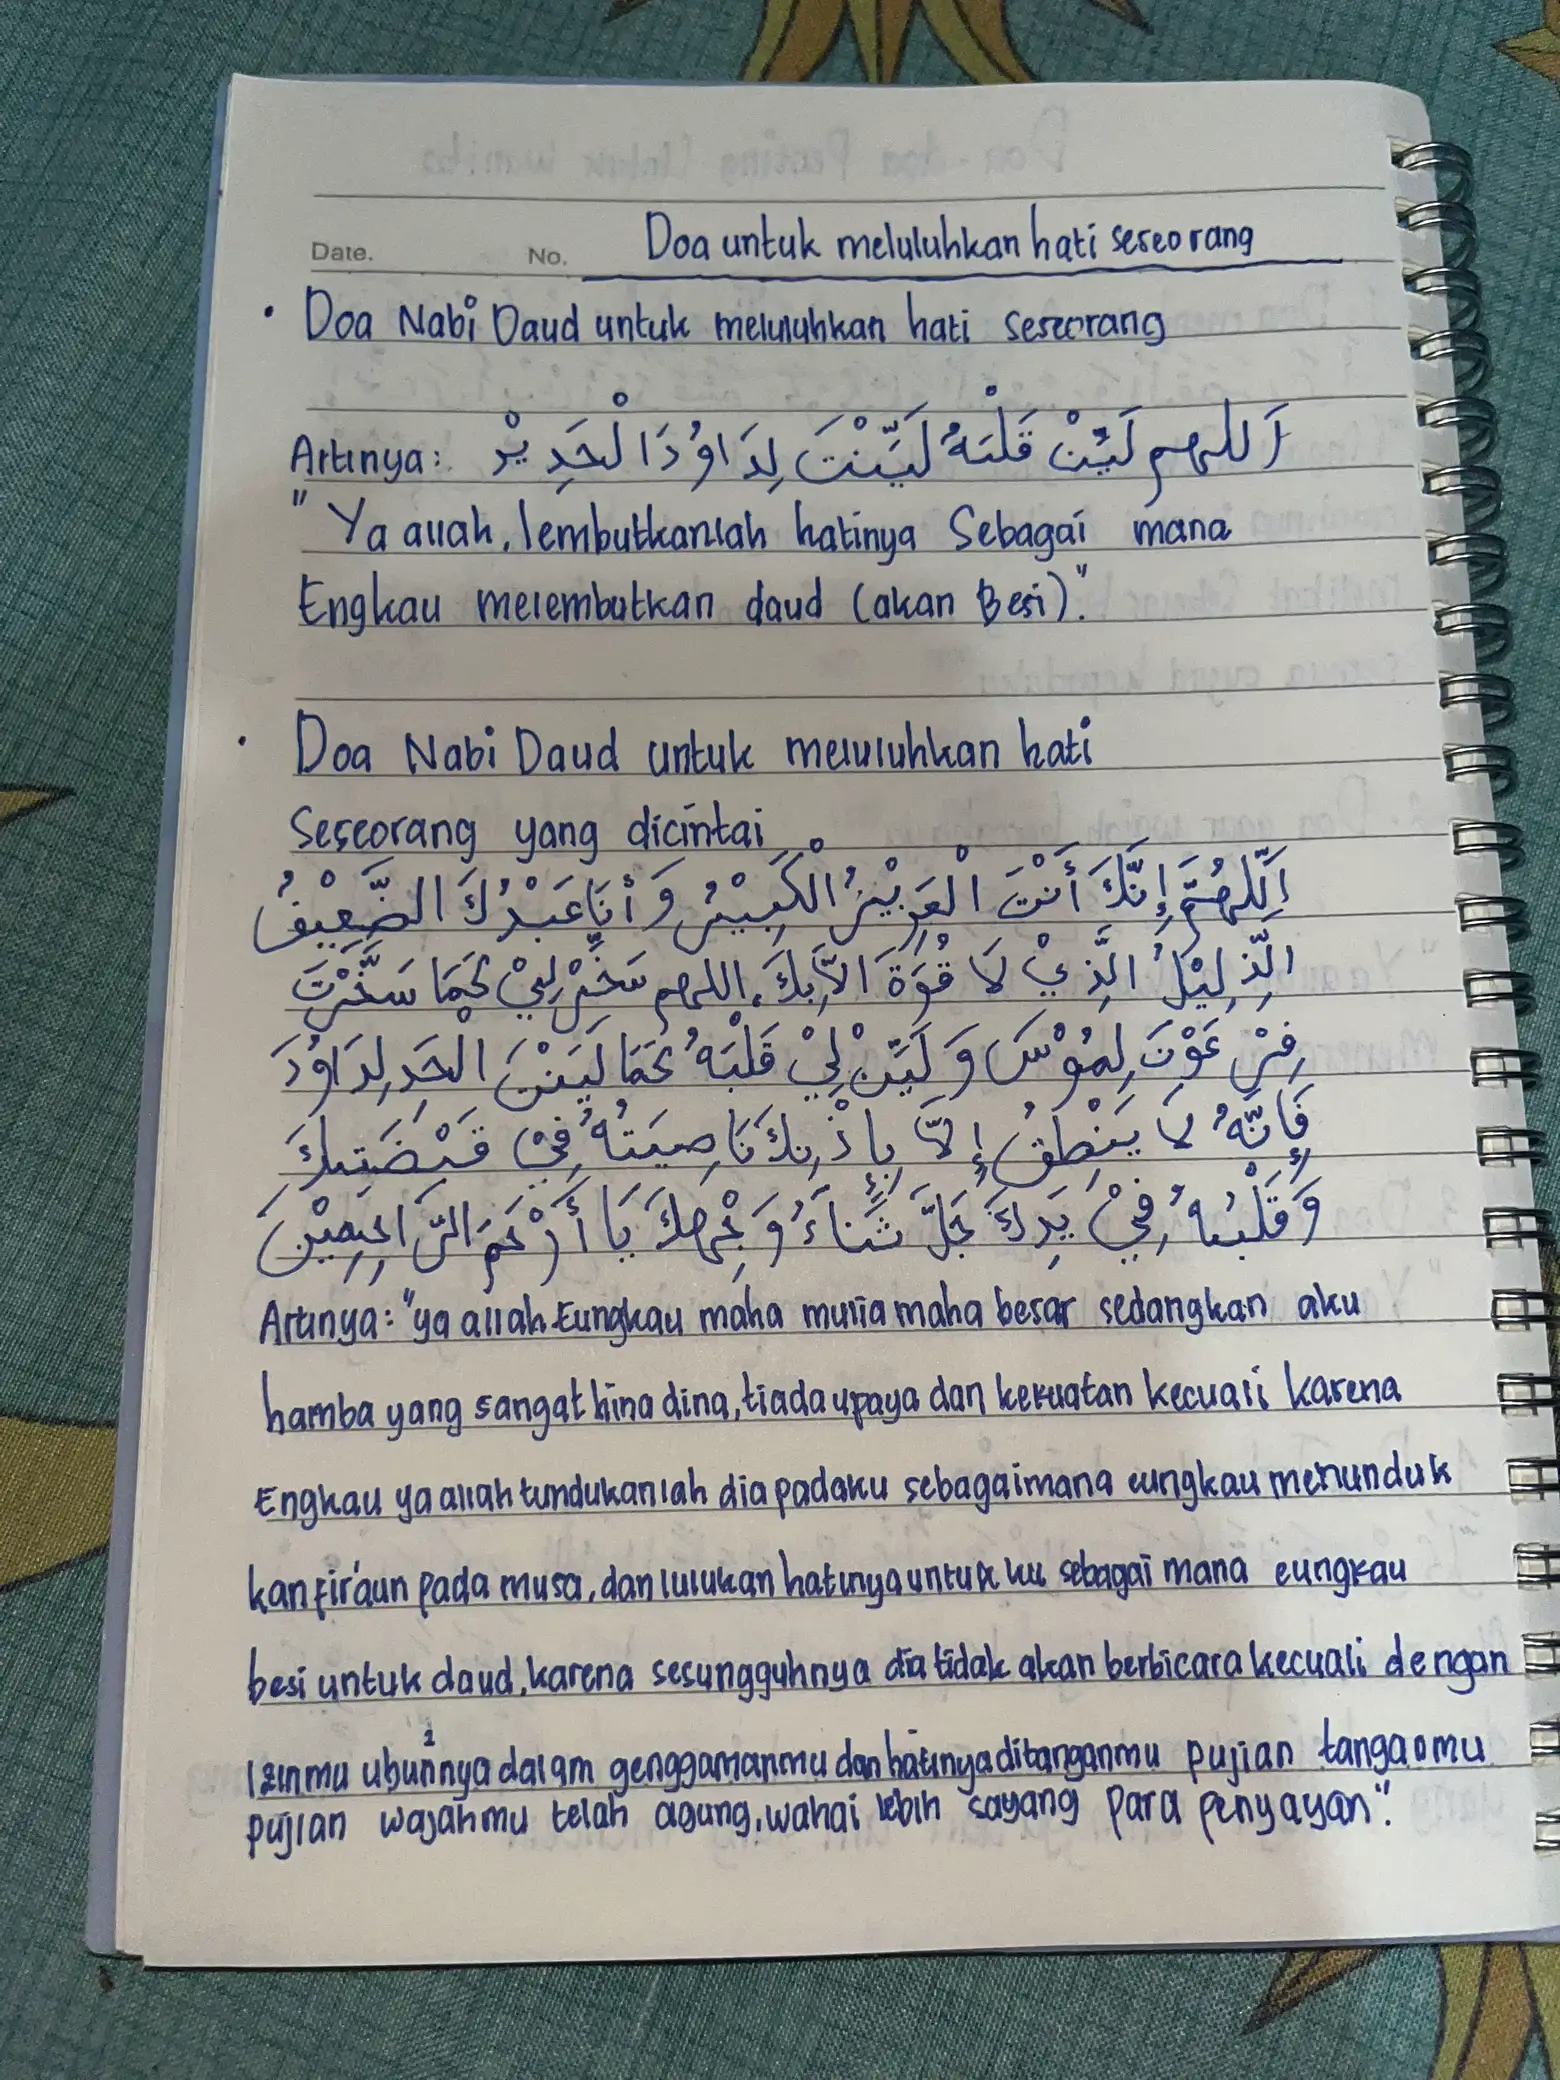 Date. No. Doa untuk meluluhkan hati seseorang
• Doa Nabi Daud untuk meluluhkan hati seseorang
Artinya: اَللهم لَيِّنْ قَلْبَهُ لَيَّنْتَ لِدَاوُدَالْحَدِيْدْ
" Ya allah, lembutkanlah hatinya Sebagai mana
Engkau melembutkan daud (akan Besi)."
• Doa Nabi Daud untuk meluluhkan hati
Seseorang yang dicintai
اَللّٰهُمَّ إِنَّكَ أَنْتَ الْعَزِيْزُ الْكَبِيْرُ وَأَنَا عَبْدُكَ الضَّعِيْفُ
الذَّلِيْلُ الَّذِيْ لَا قُوَّةَ اِلَّا بِكَ. اللهم سَخِّرْلِيْ كَمَا سَخَّرْتَ
فِرْعَوْنَ لِمُوْسَ وَلَيِّنْ لِيْ قَلْبَهُ كَمَا لَيَنْتَ الْحَد لِدَاوُدَ
فَإِنَّهُ لَا يَنْطِقُ إِلَّا بِإِذْنِكَ نَاصِيَتُهُ فِيْ قَبْضَتِكَ
وَقَلْبُهُ فِيْ يَدِكَ جَلَّ ثَنَاءُ وَجْهِكَ يَا أَرْحَمَ الرَّاحِمِيْنَ
Artinya: "ya allah Eungkau maha mulia maha besar sedangkan aku
hamba yang sangat hina dina, tiada upaya dan kekuatan kecuali karena
Engkau ya allah tundukanlah dia padaku sebagaimana eungkau menunduk
kan fir'aun pada musa, dan lulukan hatinya untuk ku sebagai mana eungkau
besi untuk daud, karena sesungguhnya dia tidak akan berbicara kecuali dengan
Izinmu ubun²nya dalam genggamanmu dan hatinya ditanganmu pujian
pujian wajahmu telah agung, wahai lebih sayang para penyayan".